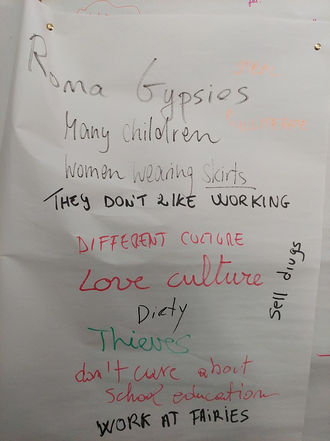 Roma Gypsies
Many children
Women wearing skirts
THEY DON'T LIKE WORKING
DIFFERENT CULTURE
Love culture
Dirty
Sell drugs
Thieves
don't care about
school education
WORK AT FAIRIES